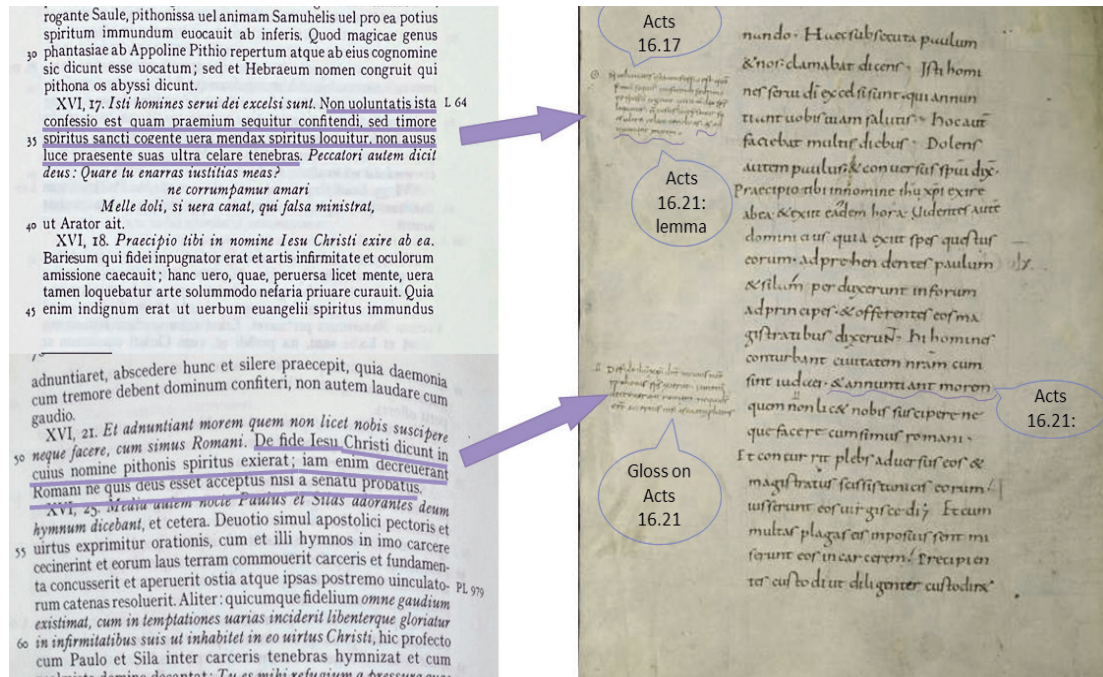 rogante Saule, pithonissa uel animam Samuhelis uel pro ea potius
spiritum immundum euocauit ab inferis. Quod magicae genus
30 phantasiae ab Appoline Pithio repertum atque ab eius cognomine
sic dicunt esse uocatum; sed et Hebraeum nomen congruit qui
pithona os abyssi dicunt.
XVI, 17. Isti homines serui dei excelsi sunt. Non uoluntatis ista L 64
confessio est quam praemium sequitur confitendi, sed timore
35 spiritus sancti cogente uera mendax spiritus loquitur, non ausus
luce praesente suas ultra celare tenebras. Peccatori autem dicit
deus: Quare tu enarras iustitias meas?
ne corrumpamur amari
Melle doli, si uera canat, qui falsa ministrat,
40 ut Arator ait.
XVI, 18. Praecipio tibi in nomine Iesu Christi exire ab ea.
Bariesum qui fidei inpugnator erat et artis infirmitate et oculorum
amissione caecauit; hanc uero, quae, peruersa licet mente, uera
tamen loquebatur arte solummodo nefaria priuare curauit. Quia
45 enim indignum erat ut uerbum euangelii spiritus immundus
adnuntiaret, abscedere hunc et silere praecepit, quia daemonia
cum tremore debent dominum confiteri, non autem laudare cum
gaudio.
XVI, 21. Et adnuntiant morem quem non licet nobis suscipere
50 neque facere, cum simus Romani. De fide Iesu Christi dicunt in
cuius nomine pithonis spiritus exierat; iam enim decreuerant
Romani ne quis deus esset acceptus nisi a senatu probatus.
XVI, 25. Media autem nocte Paulus et Silas adorantes deum
hymnum dicebant, et cetera. Deuotio simul apostolici pectoris et
55 uirtus exprimitur orationis, cum et illi hymnos in imo carcere
cecinerint et eorum laus terram commouerit carceris et fundamen-
ta concusserit et aperuerit ostia atque ipsas postremo uinculato- PL 979
rum catenas resoluerit. Aliter: quicumque fidelium omne gaudium
existimat, cum in temptationes uarias inciderit libenterque gloriatur
60 in infirmitatibus suis ut inhabitet in eo uirtus Christi, hic profecto
cum Paulo et Sila inter carceris tenebras hymnizat et cum
Tu es mihi refugium a pressura
Acts
16.17
Acts
16.21:
lemma
Gloss on
Acts
16.21
nando. Haec subsecuta paulum
& nos. clamabat dicens. Isti homi
nes serui di excelsi sunt. qui annun
tiant uobis uiam salutis. hoc aut
faciebat multis diebus. Dolens
autem paulus. & conuersus spui dix.
Praecipio tibi in nomine ihu xpi exire
abea. & exiit eadem hora. Uidentes aute
domini eius quia exiit spes questus
eorum. adprehendentes paulum
& silam perduxerunt inforum
adprincipes. & offerentes eos ma
gistratibus dixerunt. hi homines
conturbant ciuitatem nram cum
sint iudaei. & annuntiant morem
quem non lic& nobis suscipere ne
que facere cum simus romani.
Et concurrit plebs aduersus eos &
magistratus scissis tunicis eorum
iusserunt eos uirgis cedi. Et cum
multas plagas eis imposuissent mi
serunt eos in carcerem. Precipien
tes custodi ut diligenter custodir&
Acts
16.21: